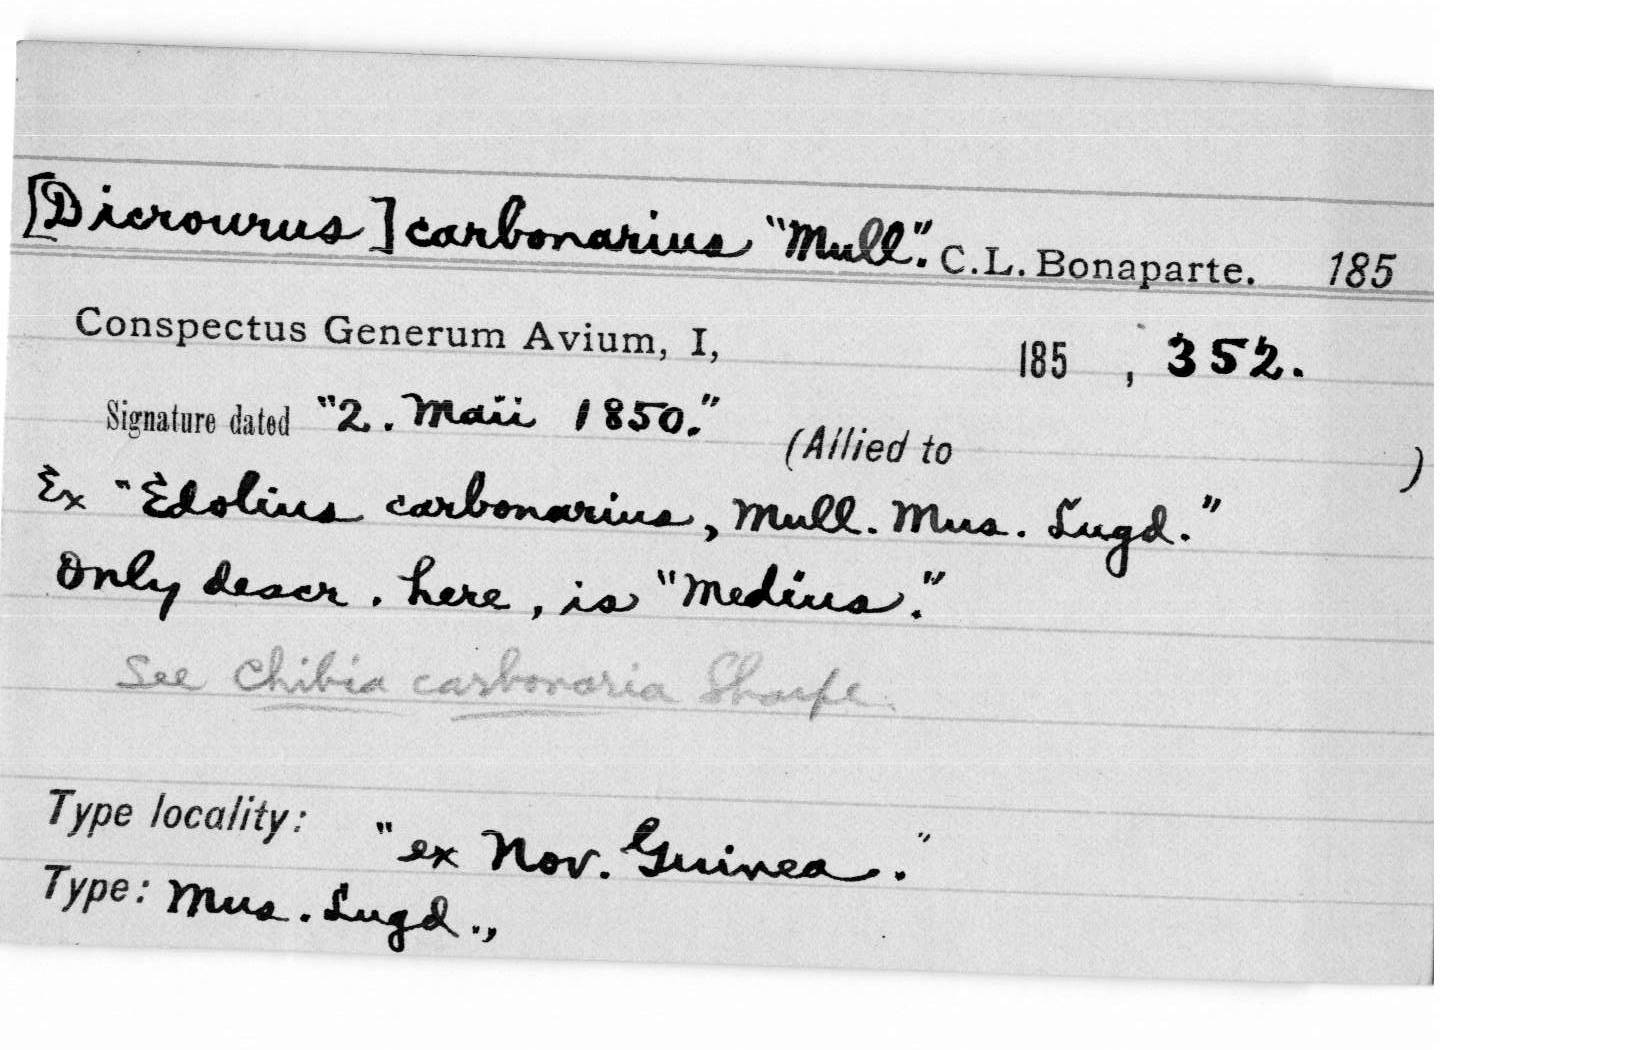 [Dicrourus] carbonarius "Mull". C.L. Bonaparte. 185
Conspectus Generum Avium, I, 185 , 352.
Signature dated "2. Maii 1850." (Allied to )
Ex "Edolius carbonarius, Mull. Mus. Lugd."
Only descr. here, is "Medius."
See Chibia carbonaria Sharpe.
Type locality: "ex Nov. Guinea."
Type: Mus. Lugd.,